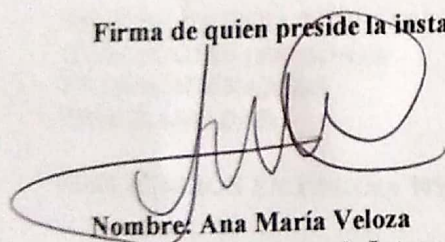 Firma de quien preside la insta
Nombre: Ana María Veloza